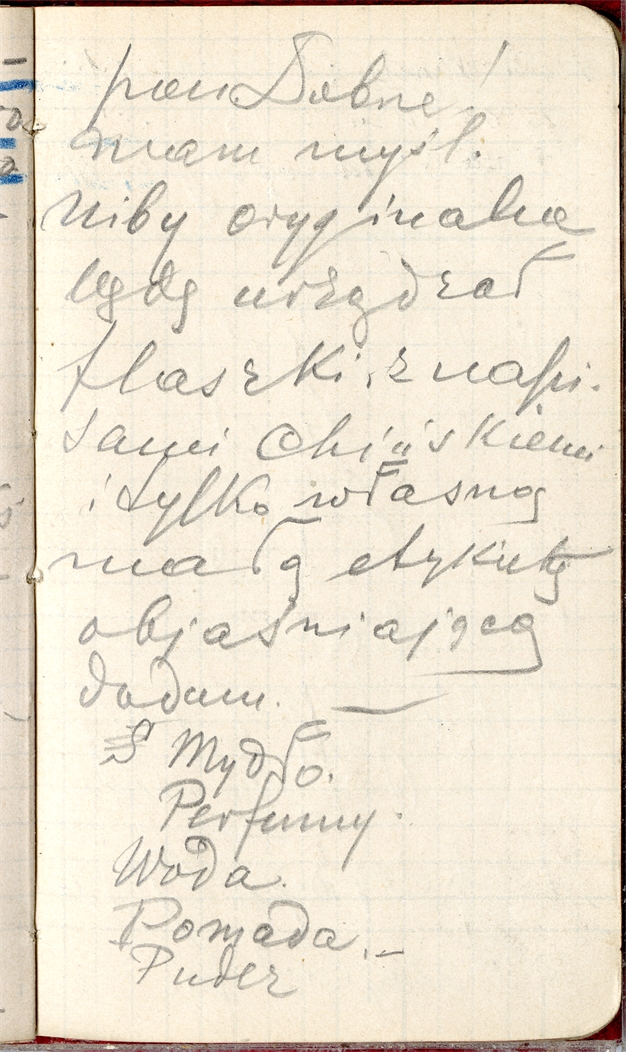 mam myśl.
Niby oryginalne
będę urządzał
flaszki, z napi-
sami Chińskiemi
i tylko własną
małą etykietę
objaśniającą
dodam. —
Mydło.
Perfumy.
Woda.
Pomada. –
Puder